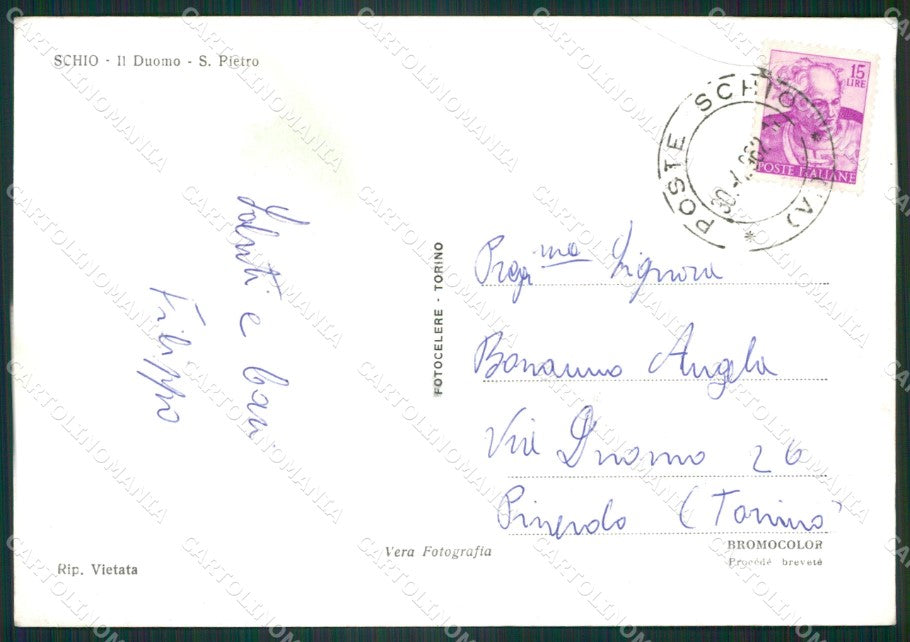 SCHIO - Il Duomo - S. Pietro
15
LIRE
POSTE ITALIANE
POSTE SCHIO (VI)
Saluti e baci
Filippo
FOTOCELERE - TORINO
Preg ma Signora
Bonanno Angela
Via Duomo 26
Pinerolo (Torino)
Vera Fotografia
BROMOCOLOR
Procédé breveté
Rip. Vietata
CARTOLINOMANIA